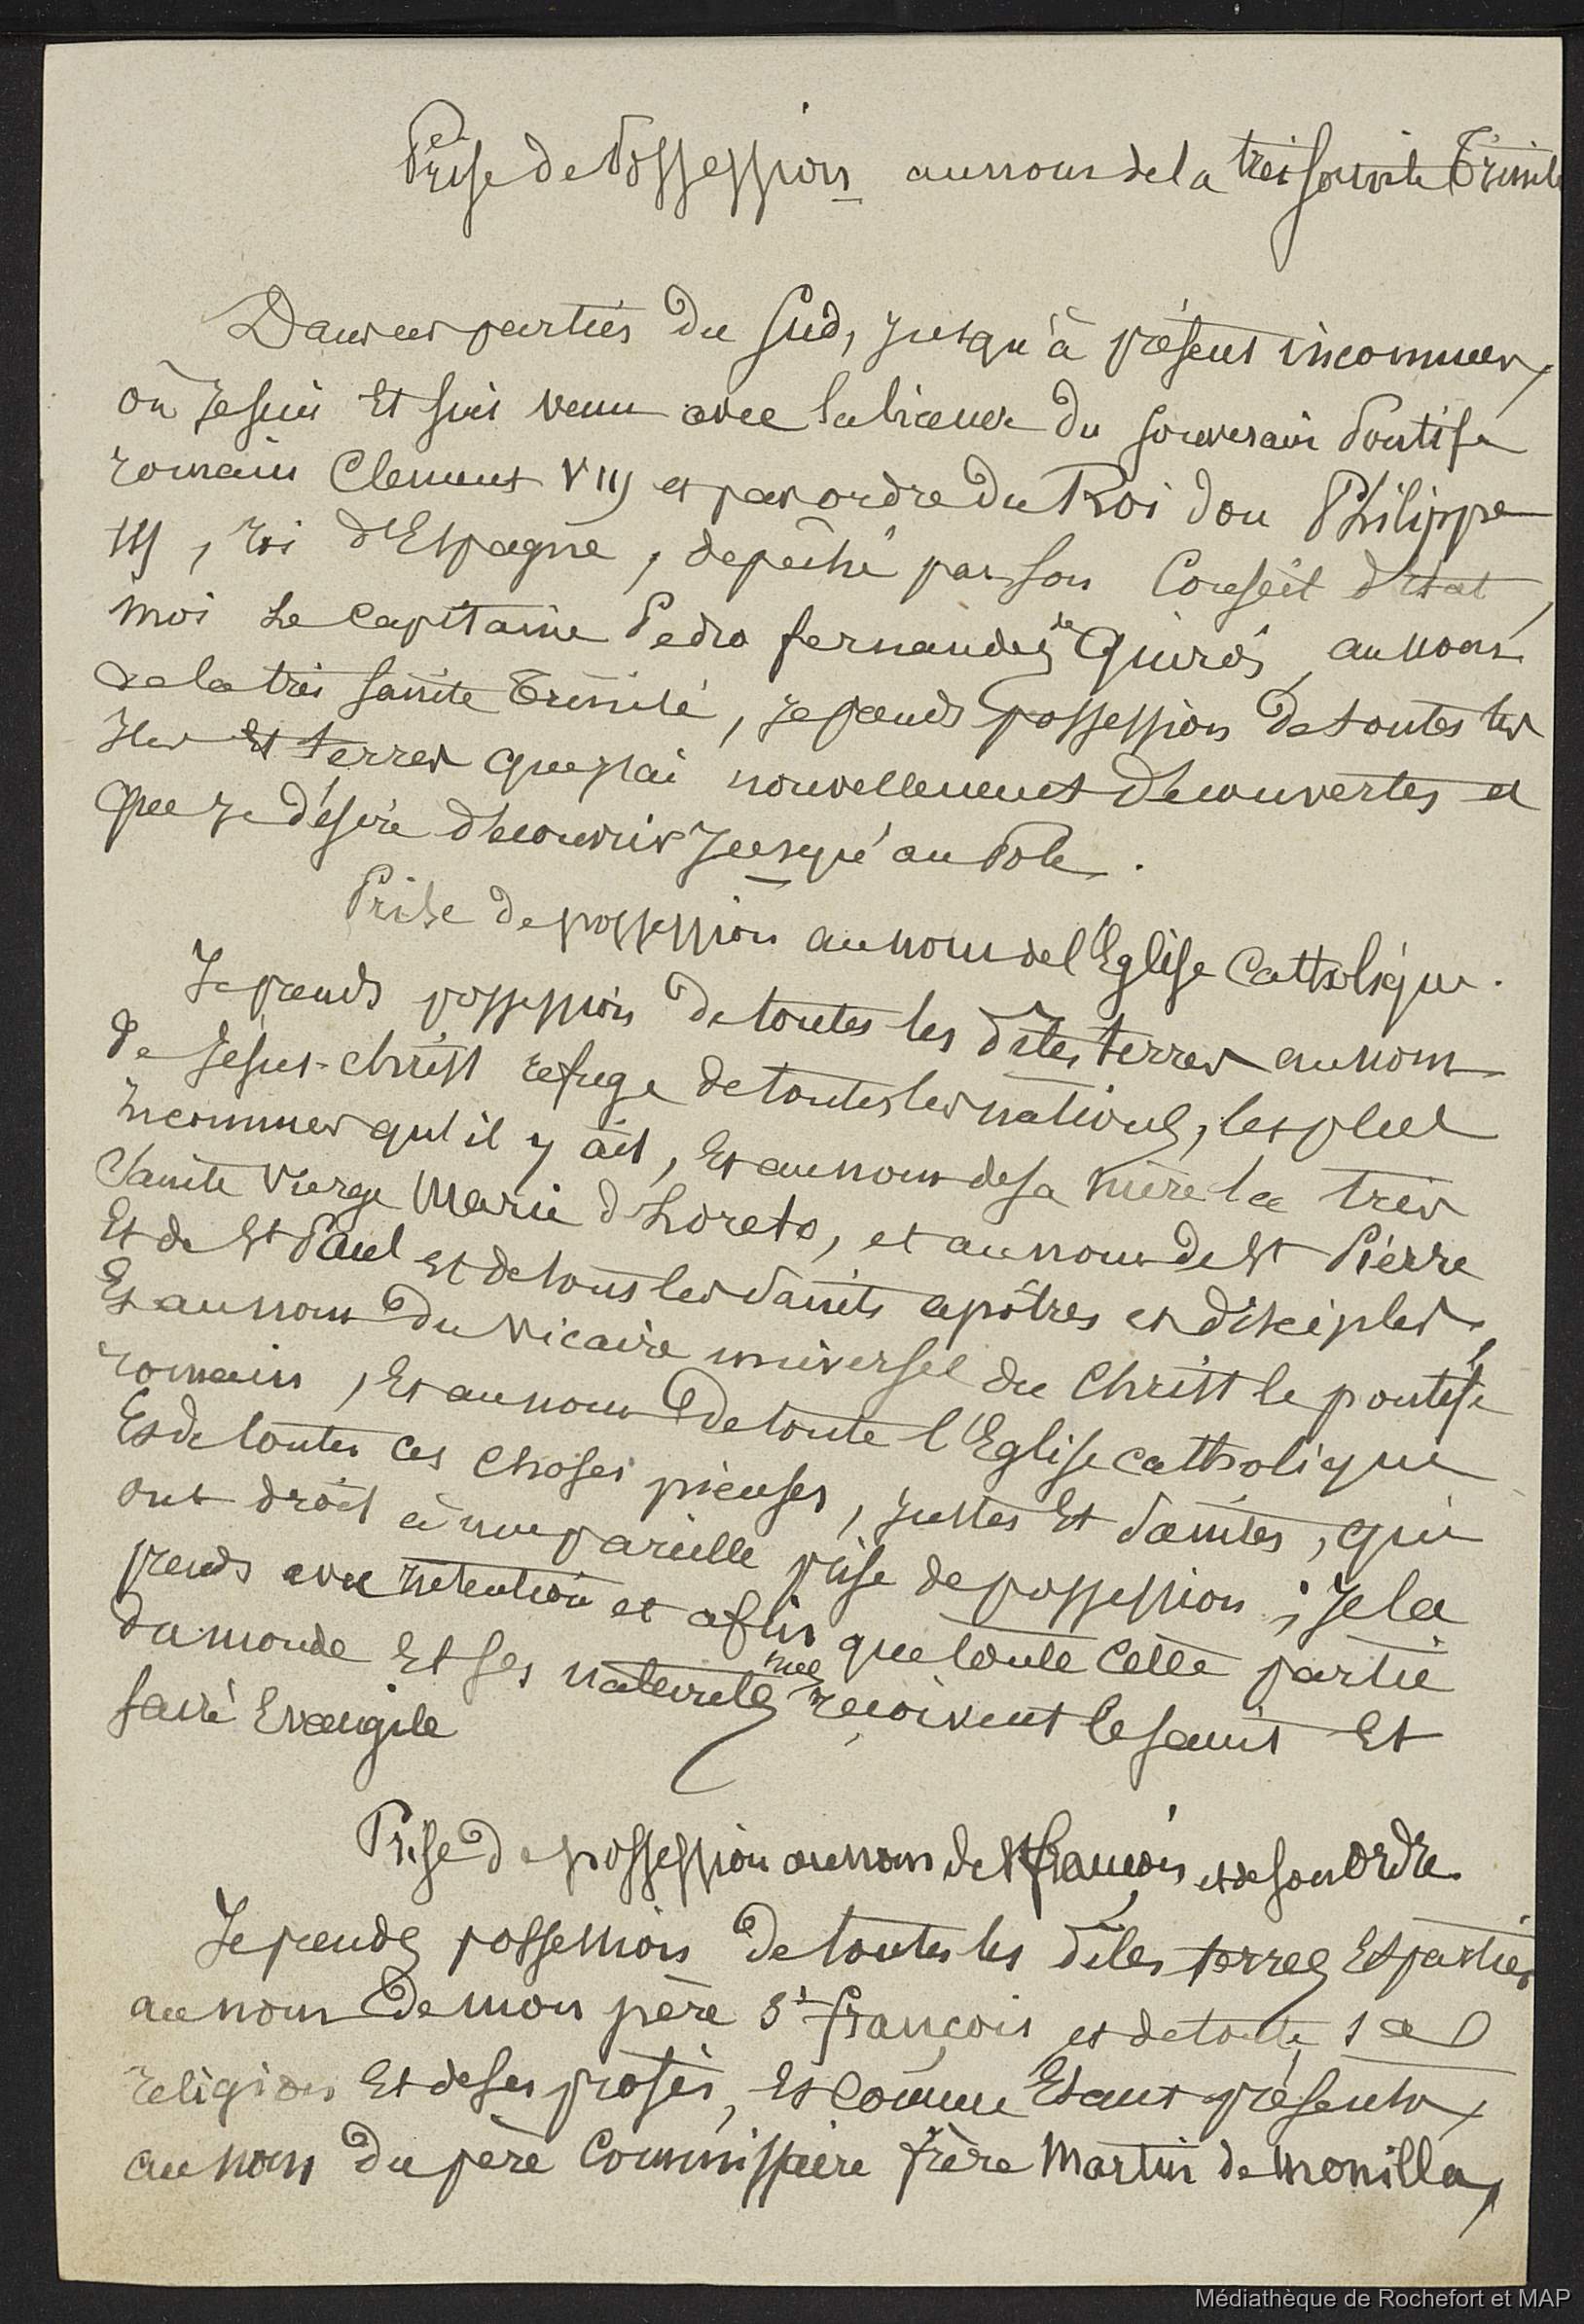 Prise de Possession au nom de la très Sainte Trinité
Dans ces parties du Sud, jusqu'à présent inconnues,
où je suis et suis venu avec la licence du souverain Pontife
romain Clement VIII et par ordre du Roi don Philippe
III, roi d'Espagne, depêché par son Conseil d'état,
moi le capitaine Pedro fernandez de Quiros, au nom
de la très sainte Trinité, je prends possession de toutes les
Iles et terres que j'ai nouvellement découvertes et
que je désire découvrir jusqu'au Pole.
Prise de possession au nom de l'Eglise Catholique.
Je prends possession de toutes les dites terres au nom
de Jésus-christ refuge de toutes les nations, les plus
inconnues qu'il y ait, et au nom de sa mère la très
Sainte Vierge Marie d Loreto, et au nom de St Pierre
Et de St Paul et de tous les Saints apôtres et disciples,
Et au nom du vicaire universel du Christ le pontife
romain, Et au nom de toute l'Eglise catholique
Et de toutes ces choses pieuses, justes et saintes, qui
ont droit à une pareille prise de possession ; je la
prends avec intention et afin que toute cette partie
du monde et ses naturels me reçoivent le saint et
sacré Evangile
Prise de possession au nom de St françois et de son ordre.
Je prends possession de toutes les dites terres et parties
au nom de mon père St françois et de toute sa
religion et de ses profès, et comme étant présents,
au nom du père commissaire frère Martin de monilla,
Médiathèque de Rochefort et MAP